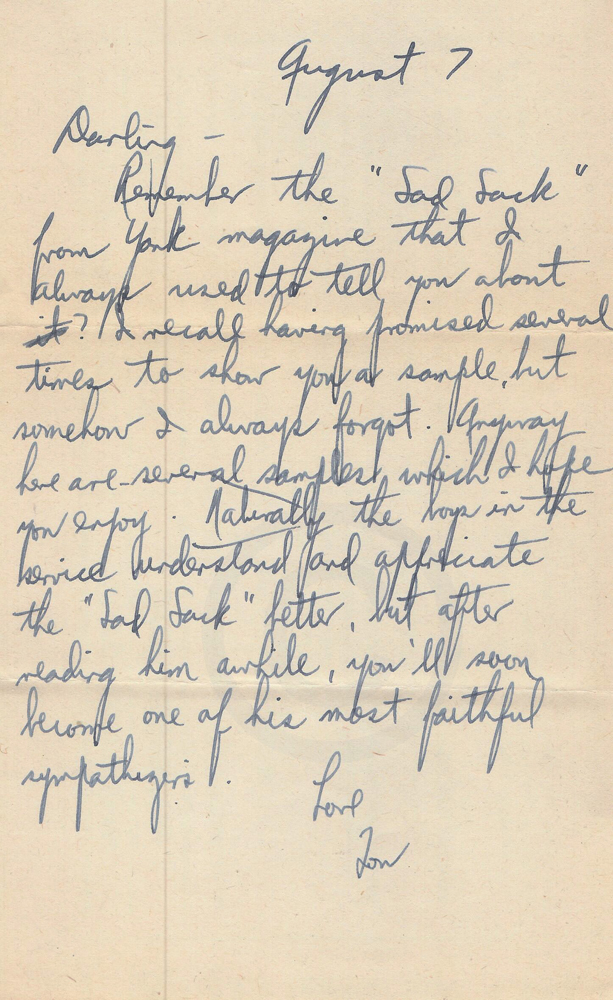 August 7
Darling -
Remember the "Sad Sack"
from Yank magazine that I
always used to tell you about
it? I recall having promised several
times to show you a sample, but
somehow I always forgot. Anyway
here are several samples which I hope
you enjoy. Naturally the boys in the
service understand and appreciate
the "Sad Sack" better, but after
reading him awhile, you'll soon
become one of his most faithful
sympathizers.
Love